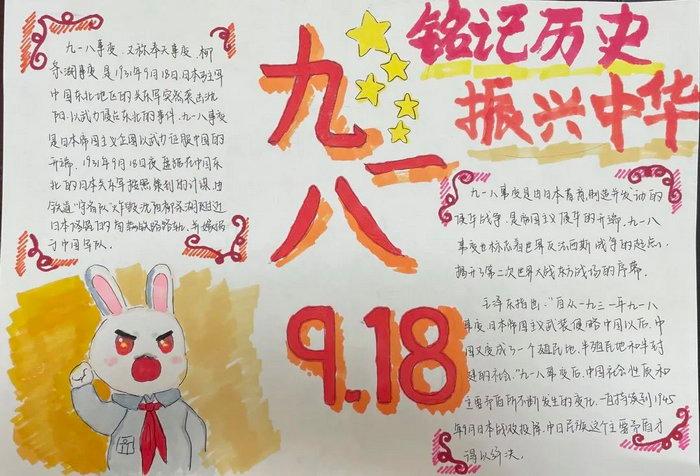 铭记历史
振兴中华
九一八
9.18
九一八事变,又称奉天事变、柳
条湖事变是1931年9月18日日本驻军
中国东北地区的关东军突然袭击沈
阳,以武力侵占东北的事件,九一八事变
是日本帝国主义企图以武力征服中国的
开端,1931年9月18日夜,盘踞在中国东
北的日本关东军按照策划的计谋,由
铁道"守备队"炸毁沈阳柳条湖附近
日本修筑的南满铁路路轨,并嫁祸
于中国军队。
九一八事变是由日本蓄意制造并发动的
侵华战争,是帝国主义侵华的开端。九一八
事变也标志着世界反法西斯战争的起点,
揭开了第二次世界大战东方战场的序幕。
毛泽东指出:"自从一九三一年九一八
事变日本帝国主义武装侵略中国以后,中
国又变成了一个殖民地、半殖民地和半封
建的社会。"九一八事变后,中国社会性质和
主要矛盾所不断发生的变化,一直持续到1945
年9月日本战败投降,中日民族这个主要矛盾才
得以解决。